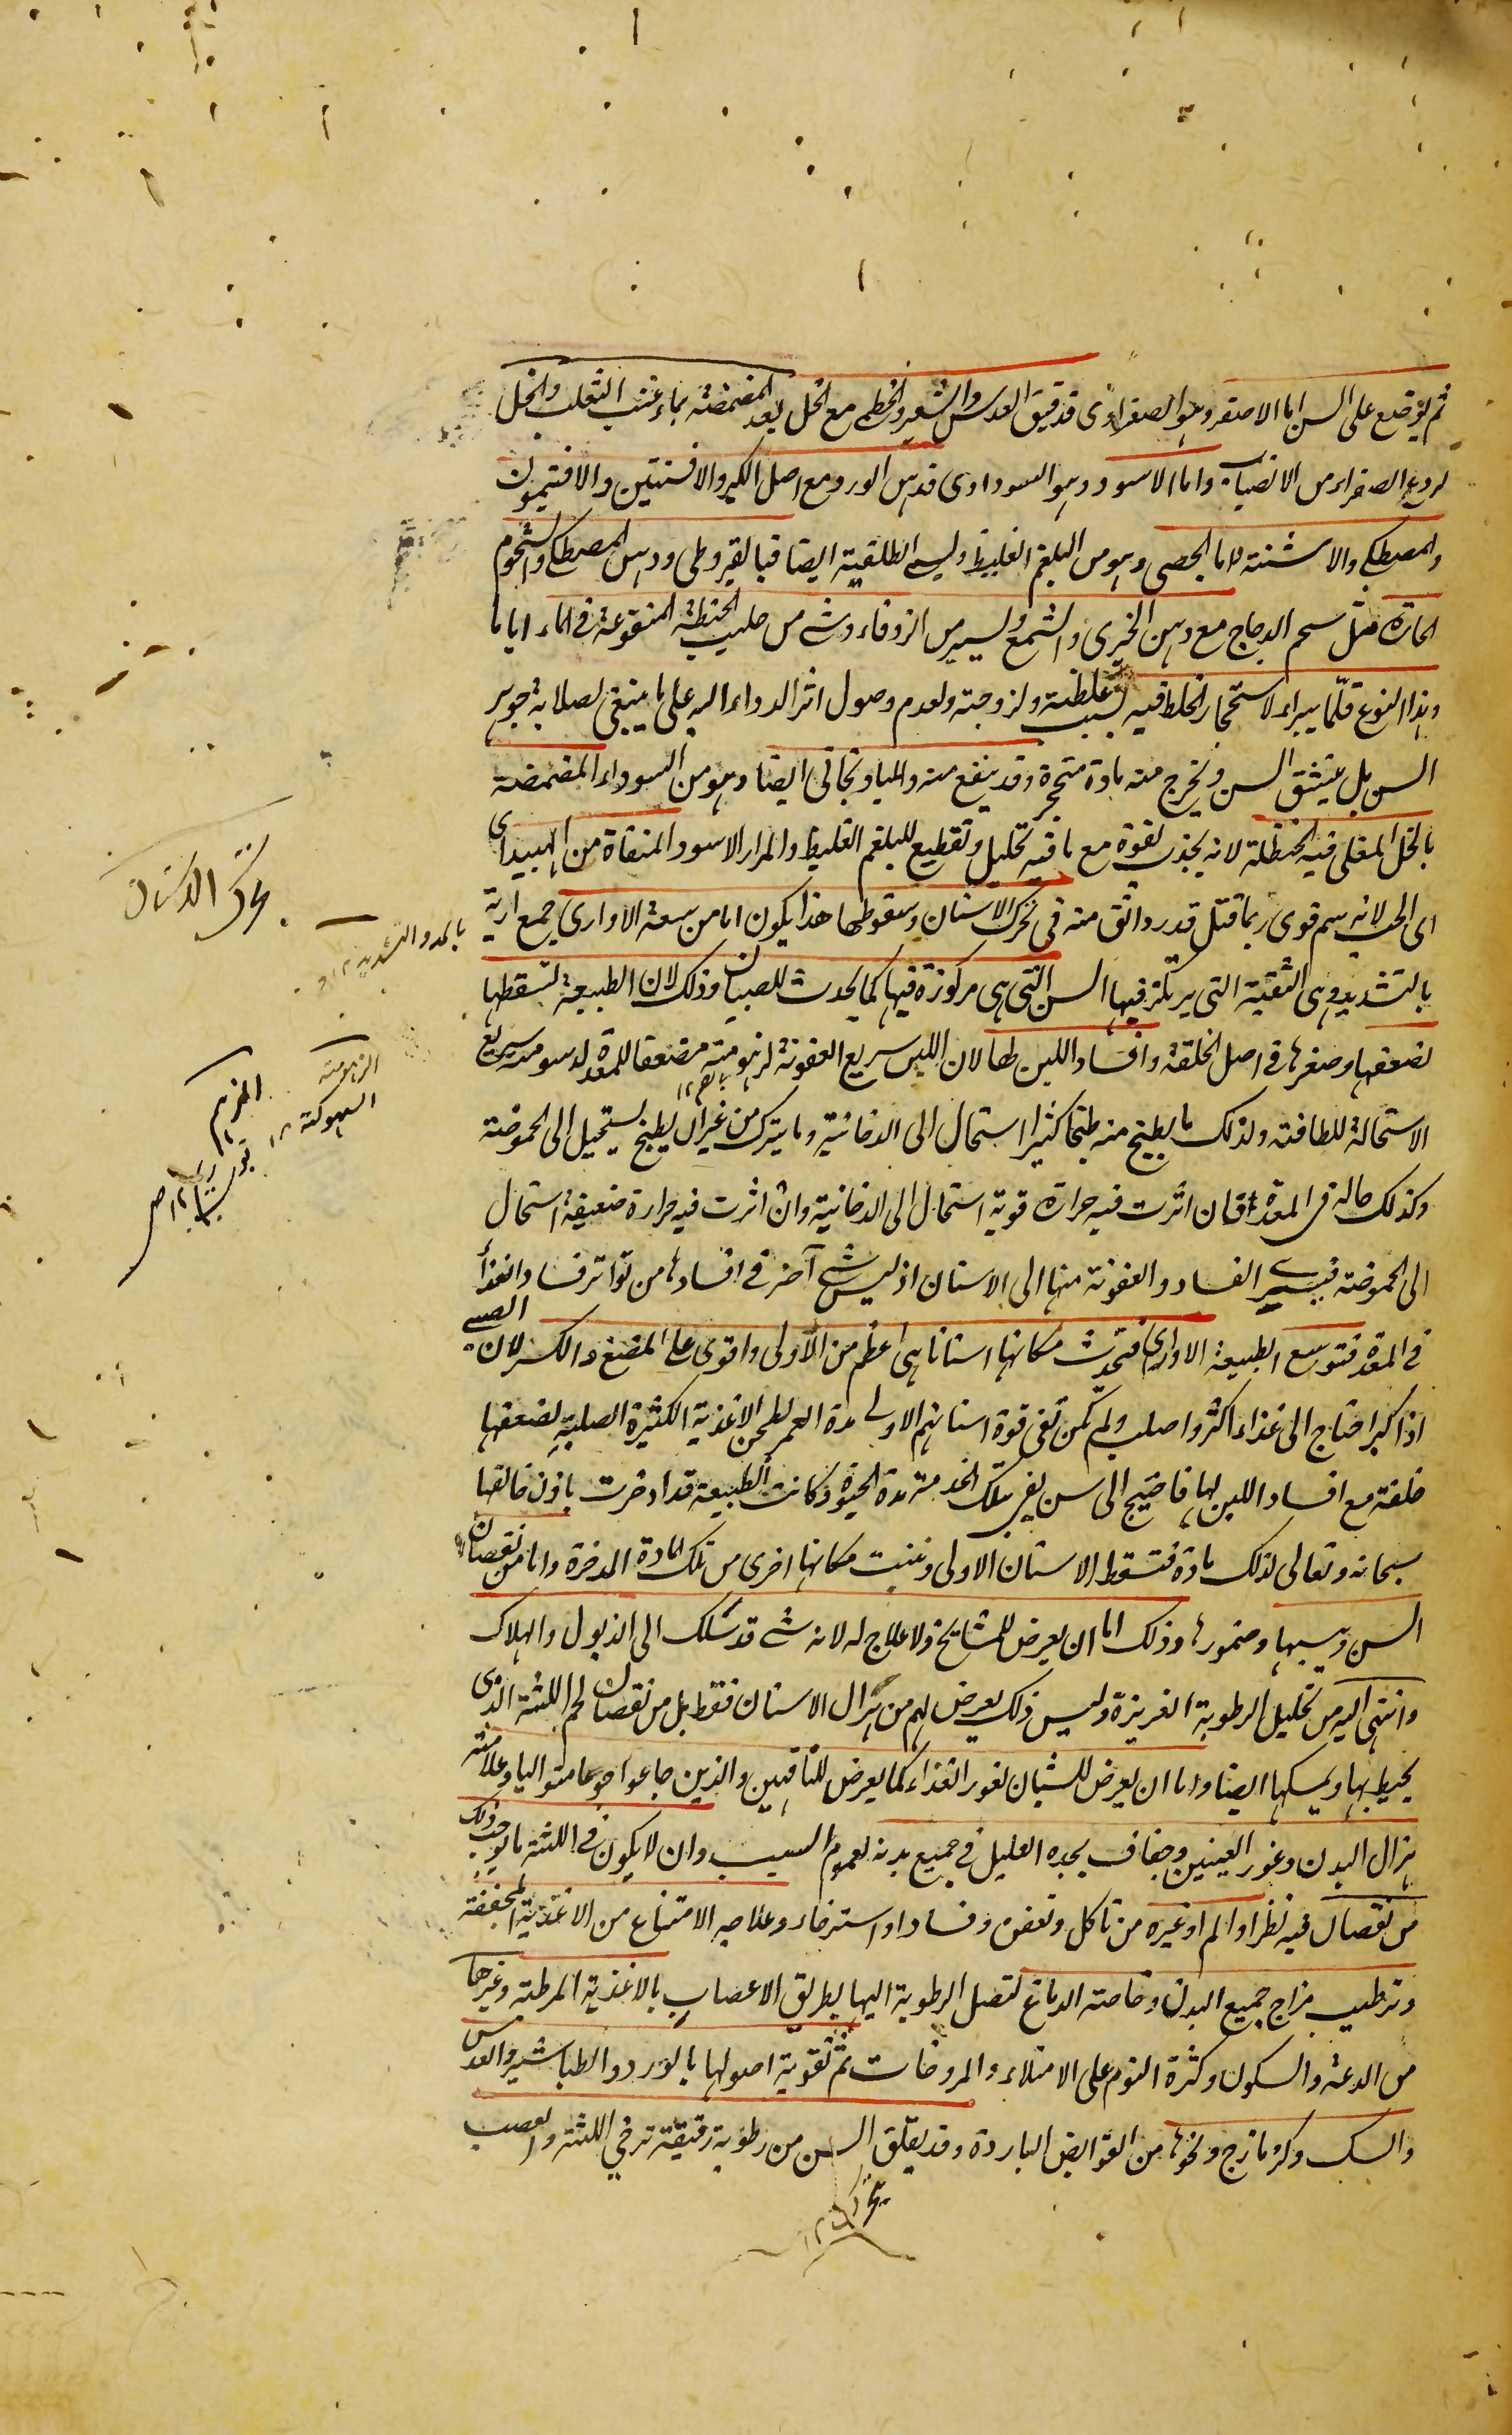 ثم يوضع على السن اما الاصفر وهو الصفراوى فدقيق العدس والشعير والخطمى مع الخل بعد المضمضة بماء عنب الثعلب والخل
لردع الصفراء من الانصباب واما الاسود وهو السوداوى فدهن الورد مع اصل الكبر والافسنتين والافتيمون
والمصطكى والاشنة واما الجصى وهو من البلغم الغليظ وليسمى الطلقية ايضا فبالقيروطى ودهن المصطكى والشحوم
الحارة مثل شحم الدجاج مع دهن الخيرى والشمع ويسير من الزوفاء وشئ من حليب الحنطة المنقوعة فى الماء اياما
وهذا النوع قلّما يبراء لاستحجار الخلط فيه بسبب غلظته ولزوجته ولعدم وصول اثر الدواء اليه على ما ينبغى لصلابة جوهر
السن بل يتشقق السن ويخرج منه مادة متحجرة وقد ينفع منه والباذنجانى ايضا وهو من السوداء المضمضة
بالخل المغلى فيه الحنظلة لانه يجذب لقوة مع ما فيه تحليل وتقطيع للبلغم الغليظ والمرار الاسود المنقاة من الهبيد اى
اى الحب لانه سم قوى ربما قتل قدر دانق منه فى تحرك الاسنان وسقوطها هذا يكون اما من سعة الاوارى جمع ارية
بالتشديد وهى الثقبة التى يرتكز فيها السن التى هى مركوزة فيها كما يحدث للصبيان وذلك لان الطبيعة تسقطها
لضعفها وصغرها فى اصل الخلقة وافساد اللبن لها لان اللبن سريع العفونة لزهومته مضعف للمعدة لدسومته سريع
الاستحالة للطافته ولذلك ما يطبخ منه طبخا كثيرا استحال الى الدخانية وما يترك من غير ان يطبخ يستحيل الى الحموضة
وكذلك حاله فى المعدة فان اثرت فيه حرارة قوية استحال الى الدخانية وان اثرت فيه حرارة ضعيفة استحال
الى الحموضة فيسير الفساد والعفونة منها الى الاسنان اذ ليس شئ آخر فى افسادها من تواتر فساد الغذاء
فى المعدة فتوسع الطبيعة الاوارى فتحدث مكانها اسنانا هى اعظم من الاولى واقوى على المضغ والكسر لان الصبى
اذا كبر احتاج الى غذاء اكثر واصلب ولم تكن تفى قوة اسنانهم الاولى مدة العمر لطحن الاغذية الكثيرة الصلبة لضعفها
خلقة مع افساد اللبن لها فاحتيج الى سن يفى بتلك الخدمة مدة الحيوة وكانت الطبيعة قد ادخرت باذن خالقها
سبحانه وتعالى لذلك مادة فتسقط الاسنان الاولى وتنبت مكانها اخرى من تلك المادة المدخرة واما من نقصان
السن ويبسها وضمورها وذلك اما ان يعرض للمشايخ ولا علاج له لانه شئ قد سلك الى الذبول والهلاك
وانتهى اليه من تحليل الرطوبة الغريزة وليس ذلك يعرض لهم من هزال الاسنان فقط بل من نقصان لحم اللثة الذى
يحيط بها ويمسكها ايضا واما ان يعرض للشبان لغور الغذاء كما يعرض للناقهين والذين جاعوا جوعا متواليا وعلامته
هزال البدن وغور العينين وجفاف يجده العليل فى جميع بدنه لعموم السبب وان لا يكون فى اللثة ما يوجب ذلك
من نقصان فيه نظر او الم او غيره من تاكل وتعفن وفساد او استرخاء وعلاجه الامتناع من الاغذية المجففة
وترطيب مزاج جميع البدن وخاصته الدماغ لتصل الرطوبة اليها بطريق الاعصاب بالاغذية المرطبة وغيرها
من الدعة والسكون وكثرة النوم على الامتلاء والمروخات ثم تقوية اصولها بالورد والطباشير والعدس
والسك وكزمازج ونحوها من القوابض الباردة وقد يقلق السن من رطوبة رقيقة ترخى اللثة والعصب
تحرك الاسنان
بالمد والتشديد ١٢
الزهومة
السهوكة ١٢